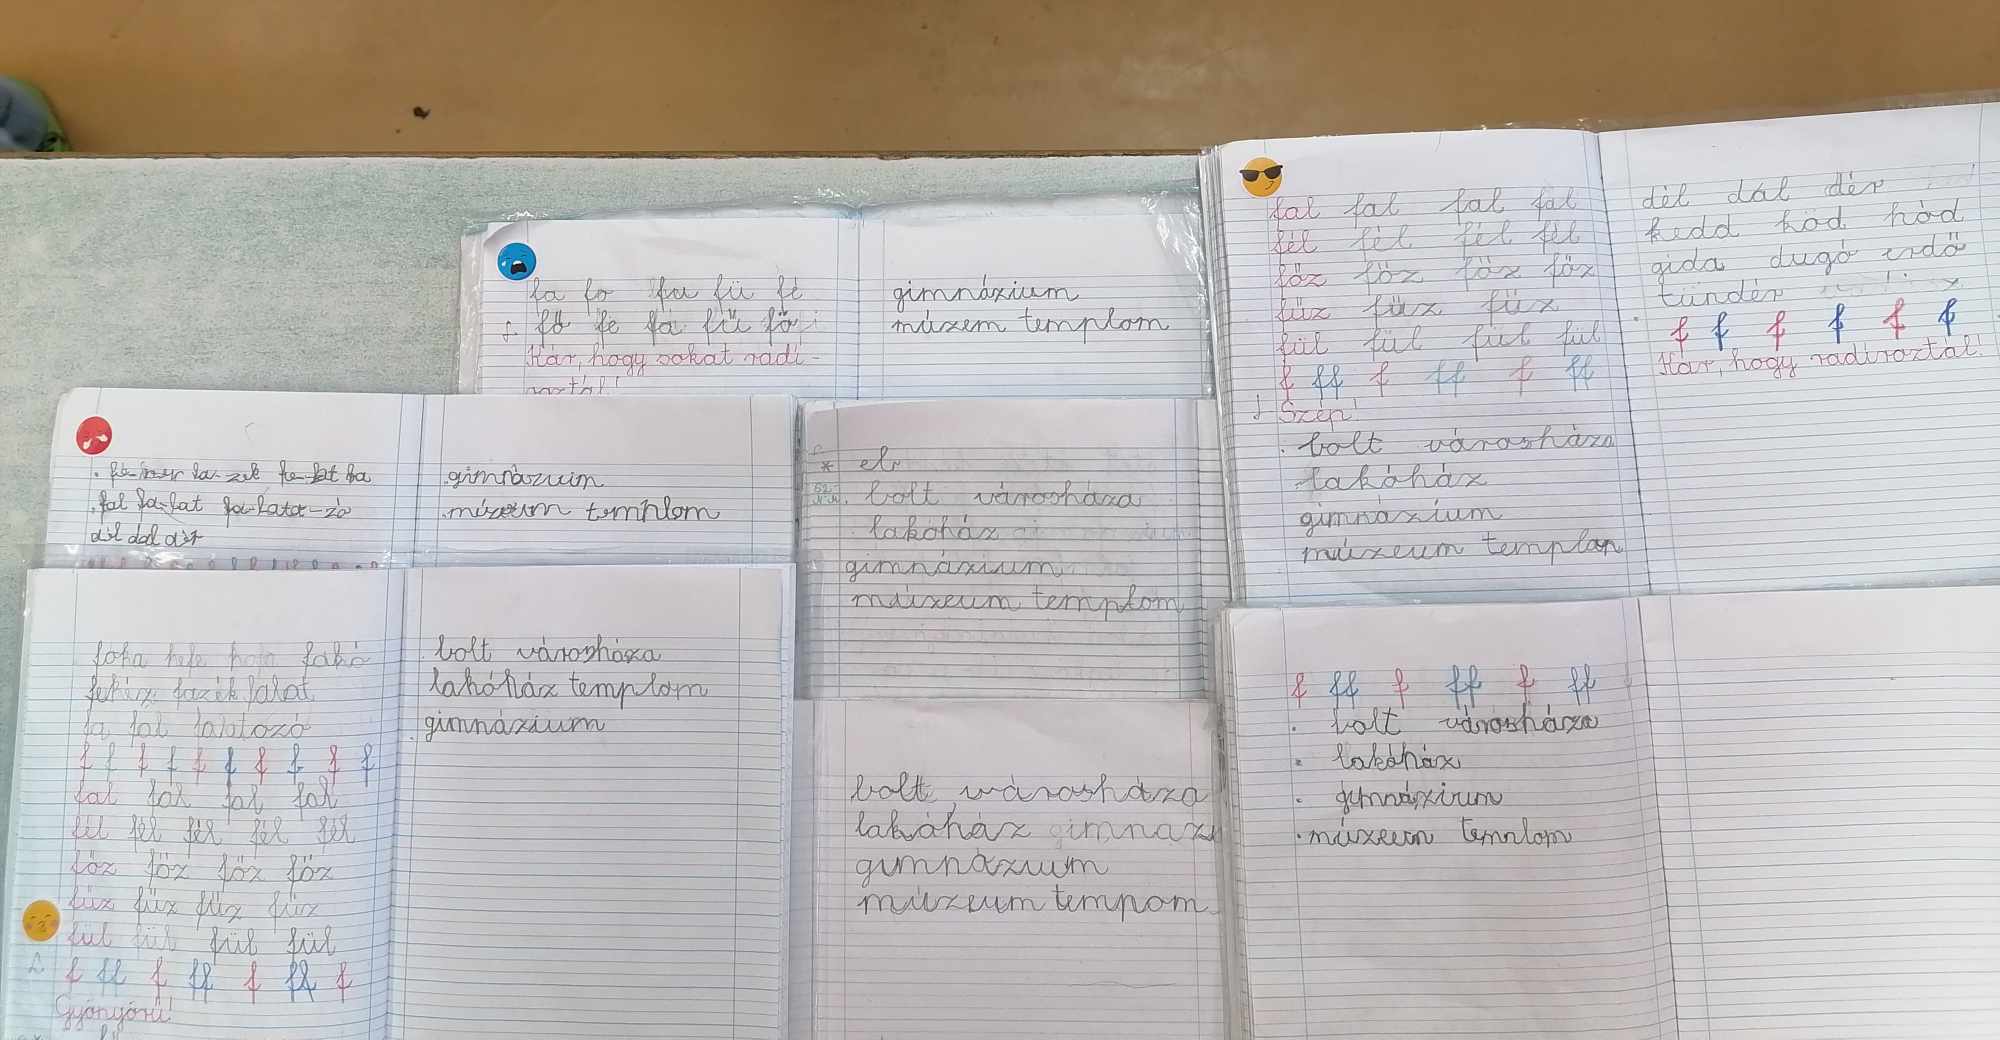 fa fo fu fü fé
fő fe fá fű fö
Kár, hogy sokat radí-
roztál!
gimnázium
múzem templom
fal fal fal fal
fél fél fél fél
főz főz főz főz
fűz fűz fűz
fül fül fül fül
f ff f ff f ff
Szép!
bolt városháza
lakóház
gimnázium
múzeum templom
dél dál dér
kedd kód hód
gida dugó erdő
tündér
f f f f f f
Kár, hogy radíroztál!
fal
dél dal dér
gimnázuim
múzeum templom
el
bolt városháza
lakóház
gimnázium
múzeum templom
foha hefe fakó
fehér fazék falat
fa fal falatozó
f f f f f f f f f f
fal fal fal fal
fél fél fél fél fél
főz főz főz főz
fűz fűz fűz fűz
fül fül fül fül
f ff f ff f ff f
Gyönyörű!
bolt városháza
lakóház templom
gimnázium
bolt városháza
lakóház
gimnázium
múzeum tempom
f ff f ff f ff
bolt városháza
lakóház
gimnázium
múzeum templom